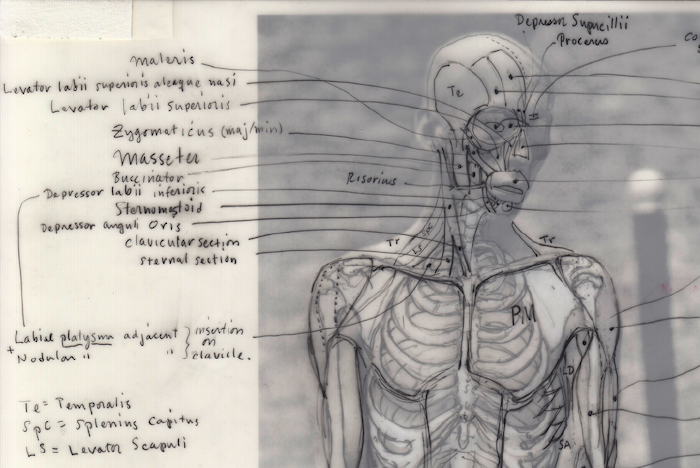 Depressor Supricillii
Procerus
Co
Malaris
Levator labii superioris aleaque nasi
Levator labii superioris
Te
Zygomaticus (maj/min)
Masseter
Buccinator
Risorius
Depressor labii inferioris
Sternomastoid
Depressor anguli Oris
clavicular section
sternal section
Tr
LS
SPC
Tr
PM
Labiae platysma adjacent } insertion
+ Nodular " " on
clavicle.
LD
SA
Te = Temporalis
SpC = Splenius Capitus
LS = Levator Scapuli